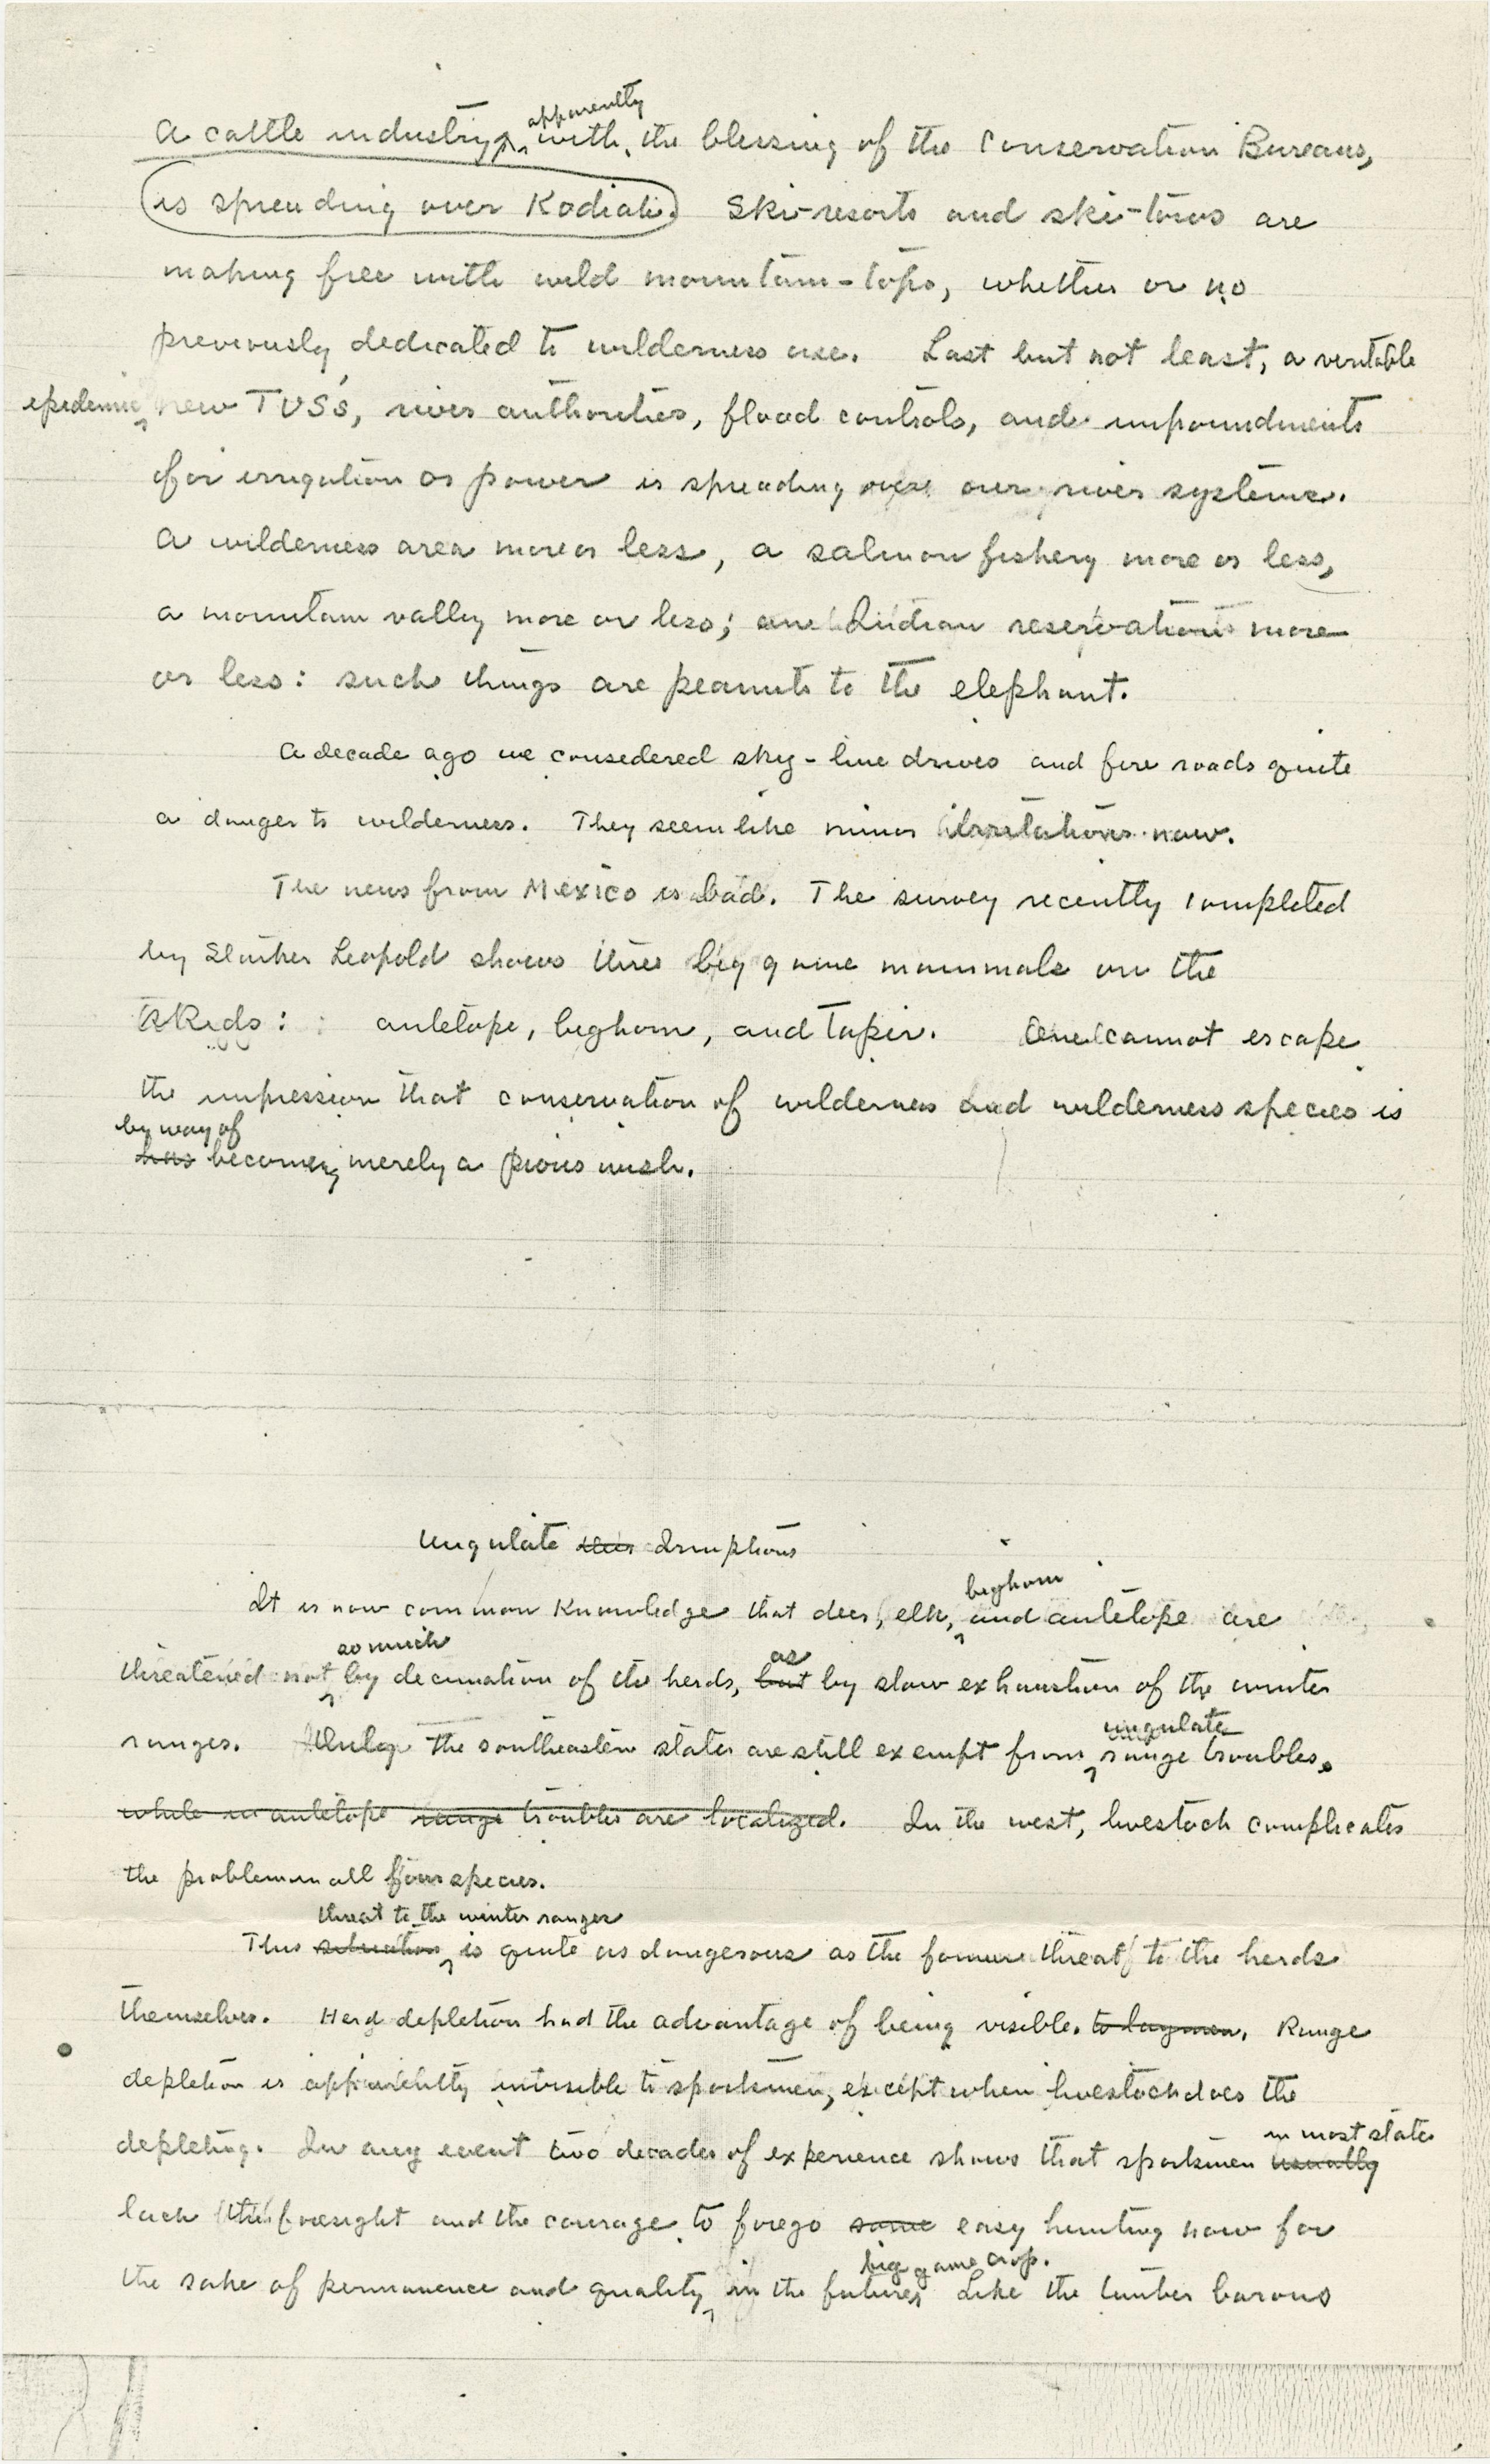 apparently
A cattle industry, with the blessing of the Conservation Bureaus,
is spreading over Kodiak. Ski-resorts and ski-tows are
making free with wild mountain-tops, whether or no
previously dedicated to wilderness use. Last but not least, a veritable
epidemic new TVS's, river authorities, flood controls, and impoundments
for irrigation or power is spreading over our river systems.
A wilderness area more or less, a salmon fishery more or less,
a mountain valley more or less; an Indian reservation more
or less: such things are peanuts to the elephant.
A decade ago we considered sky-line drives and fire roads quite
a danger to wilderness. They seem like minor now.
The news from Mexico is bad. The survey recently completed
by Starker Leopold shows three big game mammals on the
skids: antelope, bighorn, and tapir. One cannot escape
the impression that conservation of wilderness and wilderness species is
by way of
has becoming merely a pious wish.
Ungulate Irruptions
bighorn
It is now common knowledge that deer, elk, and antelope are
so much as
threatened not by decimation of the herds, but by slow exhaustion of the winter
ungulate
ranges. Only the southeastern states are still exempt from range troubles.
while in antelope range troubles are localized. In the west, livestock complicates
the problem in all four species.
threat to the winter ranges
This situation is quite as dangerous as the former threat to the herds
themselves. Herd depletion had the advantage of being visible. to laymen. Range
depletion is apparently invisible to sportsmen, except when livestock does the
in most states
depleting. In any event two decades of experience shows that sportsmen usually
lack the foresight and the courage to forego some easy hunting now for
big game crop.
the sake of permanence and quality in the future, Like the lumber barons